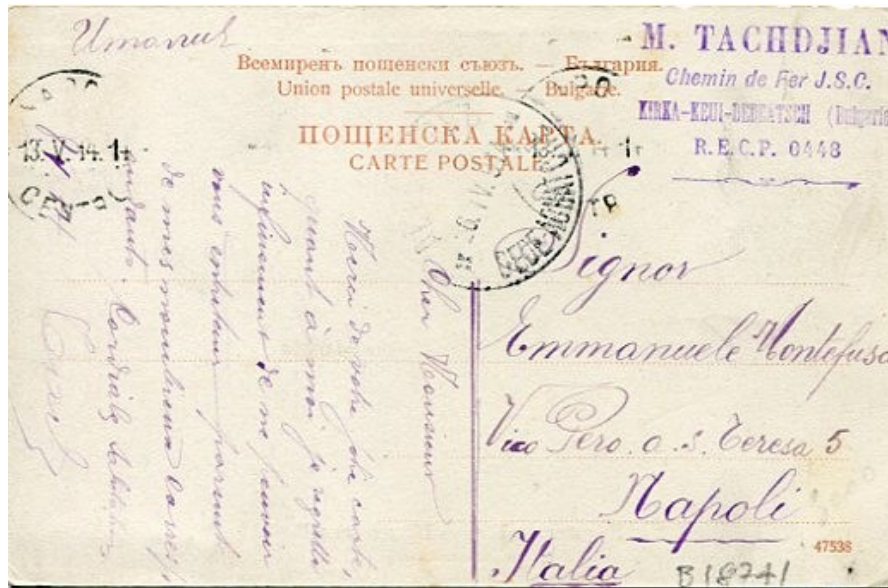 Италия
Всемиренъ пощенски съюзъ. — България.
Union postale universelle. — Bulgarie.
ПОЩЕНСКА КАРТА.
CARTE POSTALE.
M. TACHDJIAN
Chemin de Fer J.S.C.
KIRKA-KEUI-DEDEATSCH (Bulgarie
R.E.C.P. 0448
13. V. 14. 1
Cher Monsieur
Merci de votre jolie carte,
quant à moi, je regrette
infiniment de ne pouvoir
vous entretenir parmi
de mes nombreux corres,
pondants. Cordiales
Signor
Emmanuele Montefusc
Vico Pero. a. S. Teresa 5
Napoli
Italia
47538
B18741